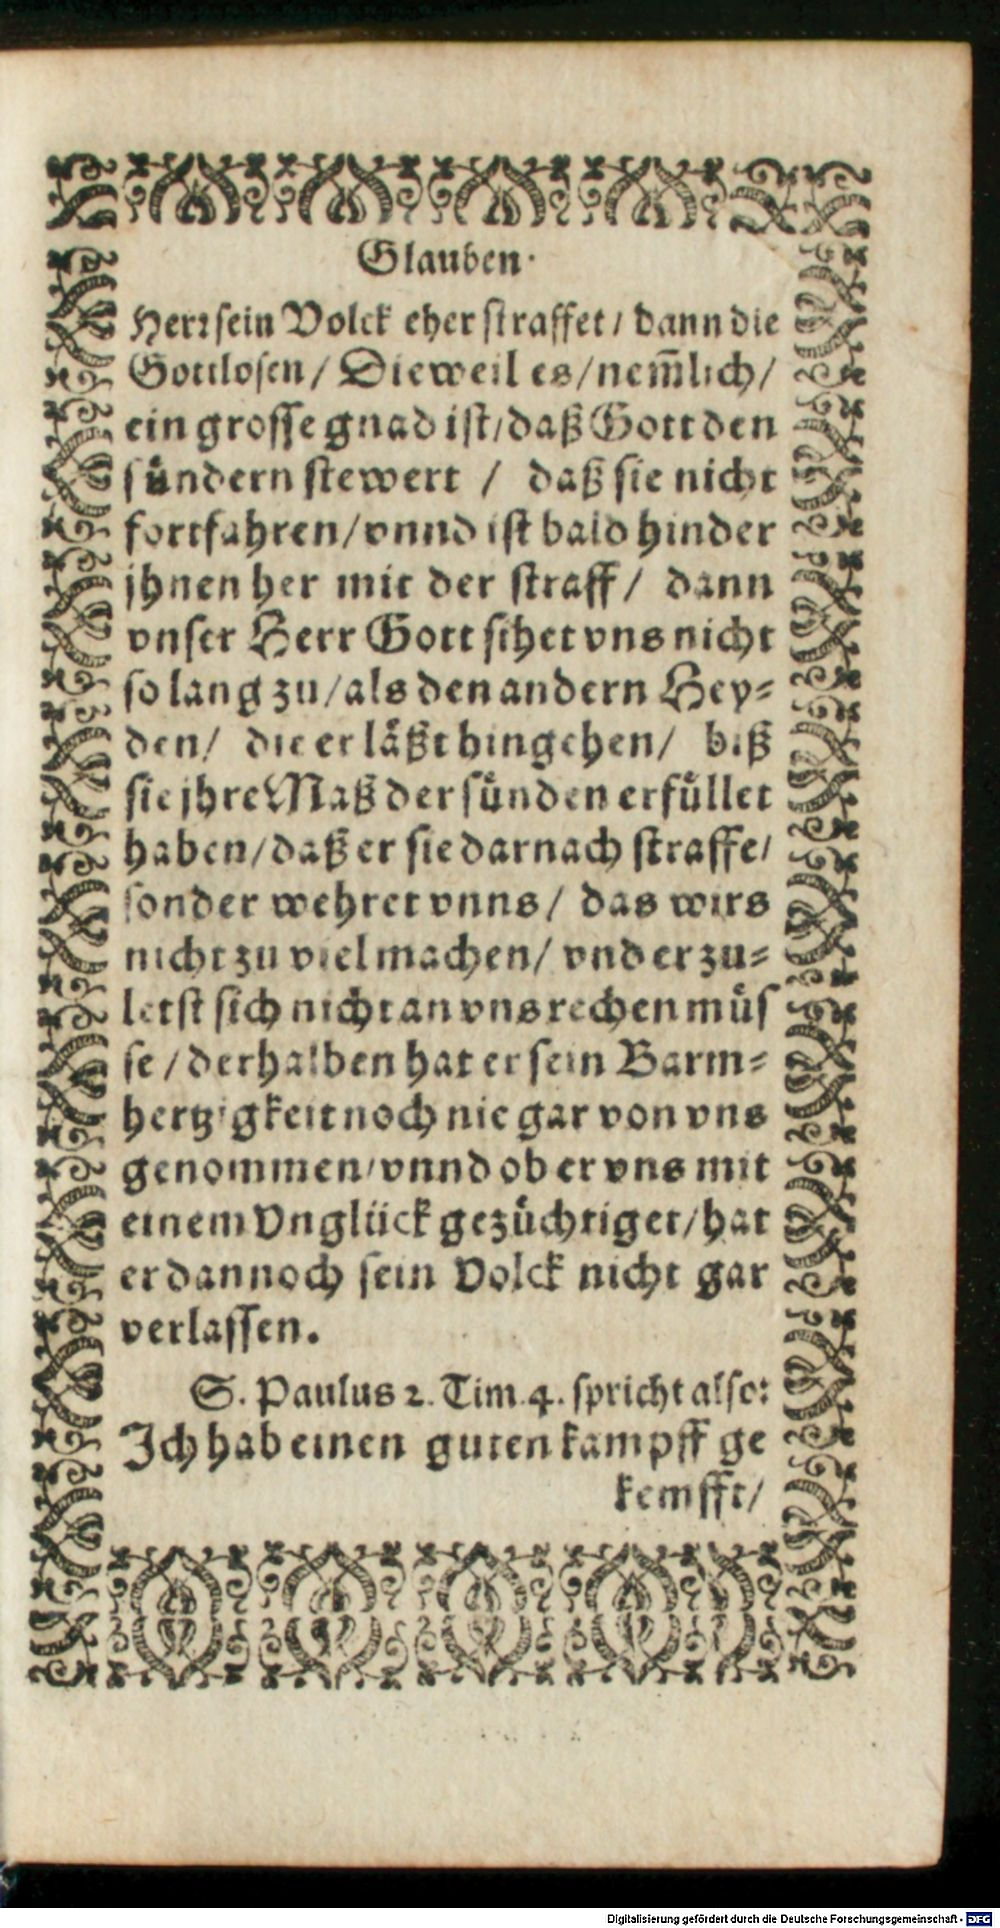 Glauben.
Herr sein Volck eher straffet / dann die
Gottlosen / Dieweil es / nem̃lich /
ein grosse gnad ist / daß Gott den
sündern stewert / daß sie nicht
fortfahren / vnnd ist bald hinder
jhnen her mit der straff / dann
vnser Herr Gott sihet vns nicht
so lang zu / als den andern Hey-
den / die er läßt hingehen / biß
sie jhre Maß der sünden erfüllet
haben / daß er sie darnach straffe /
sonder wehret vnns / das wirs
nicht zu viel machen / vnd er zu-
letst sich nicht an vns rechen müs
se / derhalben hat er sein Barm-
hertzigkeit noch nie gar von vns
genommen / vnnd ob er vns mit
einem Vnglück gezüchtiget / hat
er dannoch sein Volck nicht gar
verlassen.
S. Paulus 2. Tim. 4. spricht also:
Ich hab einen guten kampff ge
kempfft /
Digitalisierung gefördert durch die Deutsche Forschungsgemeinschaft - DFG